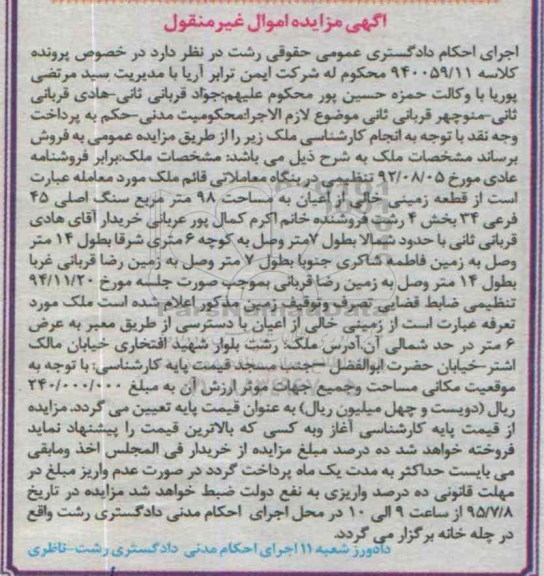 آگهی مزایده اموال غیر منقول
اجرای احکام دادگستری عمومی حقوقی رشت در نظر دارد در خصوص پرونده
کلاسه ۹۴۰۰۵۹/۱۱ محکوم له شرکت ایمن ترابر آریا با مدیریت سید مرتضی
پوریا با وکالت حمزه حسین پور محکوم علیهم:جواد قربانی ثانی-هادی قربانی
ثانی-منوچهر قربانی ثانی موضوع لازم الاجرا:محکومیت مدنی-حکم به پرداخت
وجه نقد با توجه به انجام کارشناسی ملک زیر را از طریق مزایده عمومی به فروش
برساند مشخصات ملک به شرح ذیل می باشد: مشخصات ملک:برابر فروشنامه
عادی مورخ ۹۲/۰۸/۰۵ تنظیمی در بنگاه معاملاتی قائم ملک مورد معامله عبارت
است از قطعه زمینی خالی از اعیان به مساحت ۹۸ متر مربع سنگ اصلی ۴۵
فرعی ۳۴ بخش ۴ رشت فروشنده خانم اکرم کمال پور عربانی خریدار آقای هادی
قربانی ثانی با حدود شمالا بطول ۷متر وصل به کوچه ۶ متری شرقا بطول ۱۴ متر
وصل به زمین فاطمه شاکری جنوبا بطول ۷ متر وصل به زمین رضا قربانی غربا
بطول ۱۴ متر وصل به زمین رضا قربانی بموجب صورت جلسه مورخ ۹۴/۱۱/۲۰
تنظیمی ضابط قضایی تصرف وتوقیف زمین مذکور اعلام شده است ملک مورد
تعرفه عبارت است از زمینی خالی از اعیان با دسترسی از طریق معبر به عرض
۶ متر در حد شمالی آن.آدرس ملک: رشت بلوار شهید افتخاری خیابان مالک
اشتر-خیابان حضرت ابوالفضل -جنب مسجد قیمت پایه کارشناسی: با توجه به
موقعیت مکانی مساحت وجمیع جهات موثر ارزش آن به مبلغ ۲۴۰/۰۰۰/۰۰۰
ریال (دویست و چهل میلیون ریال) به عنوان قیمت پایه تعیین می گردد. مزایده
از قیمت پایه کارشناسی آغاز وبه کسی که بالاترین قیمت را پیشنهاد نماید
فروخته خواهد شد ده درصد مبلغ مزایده از خریدار فی المجلس اخذ ومابقی
می بایست حداکثر به مدت یک ماه پرداخت گردد در صورت عدم واریز مبلغ در
مهلت قانونی ده درصد واریزی به نفع دولت ضبط خواهد شد مزایده در تاریخ
۹۵/۷/۸ از ساعت ۹ الی ۱۰ در محل اجرای احکام مدنی دادگستری رشت واقع
در چله خانه برگزار می گردد.
دادورز شعبه ۱۱ اجرای احکام مدنی دادگستری رشت-ناظری